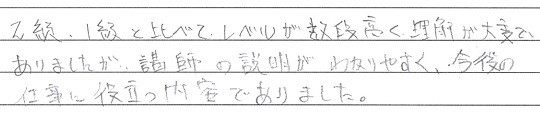 2級、1級と比べて、レベルが数段高く、理解が大変で
ありましたが、講師の説明がわかりやすく、今後の
仕事に役立つ内容でありました。